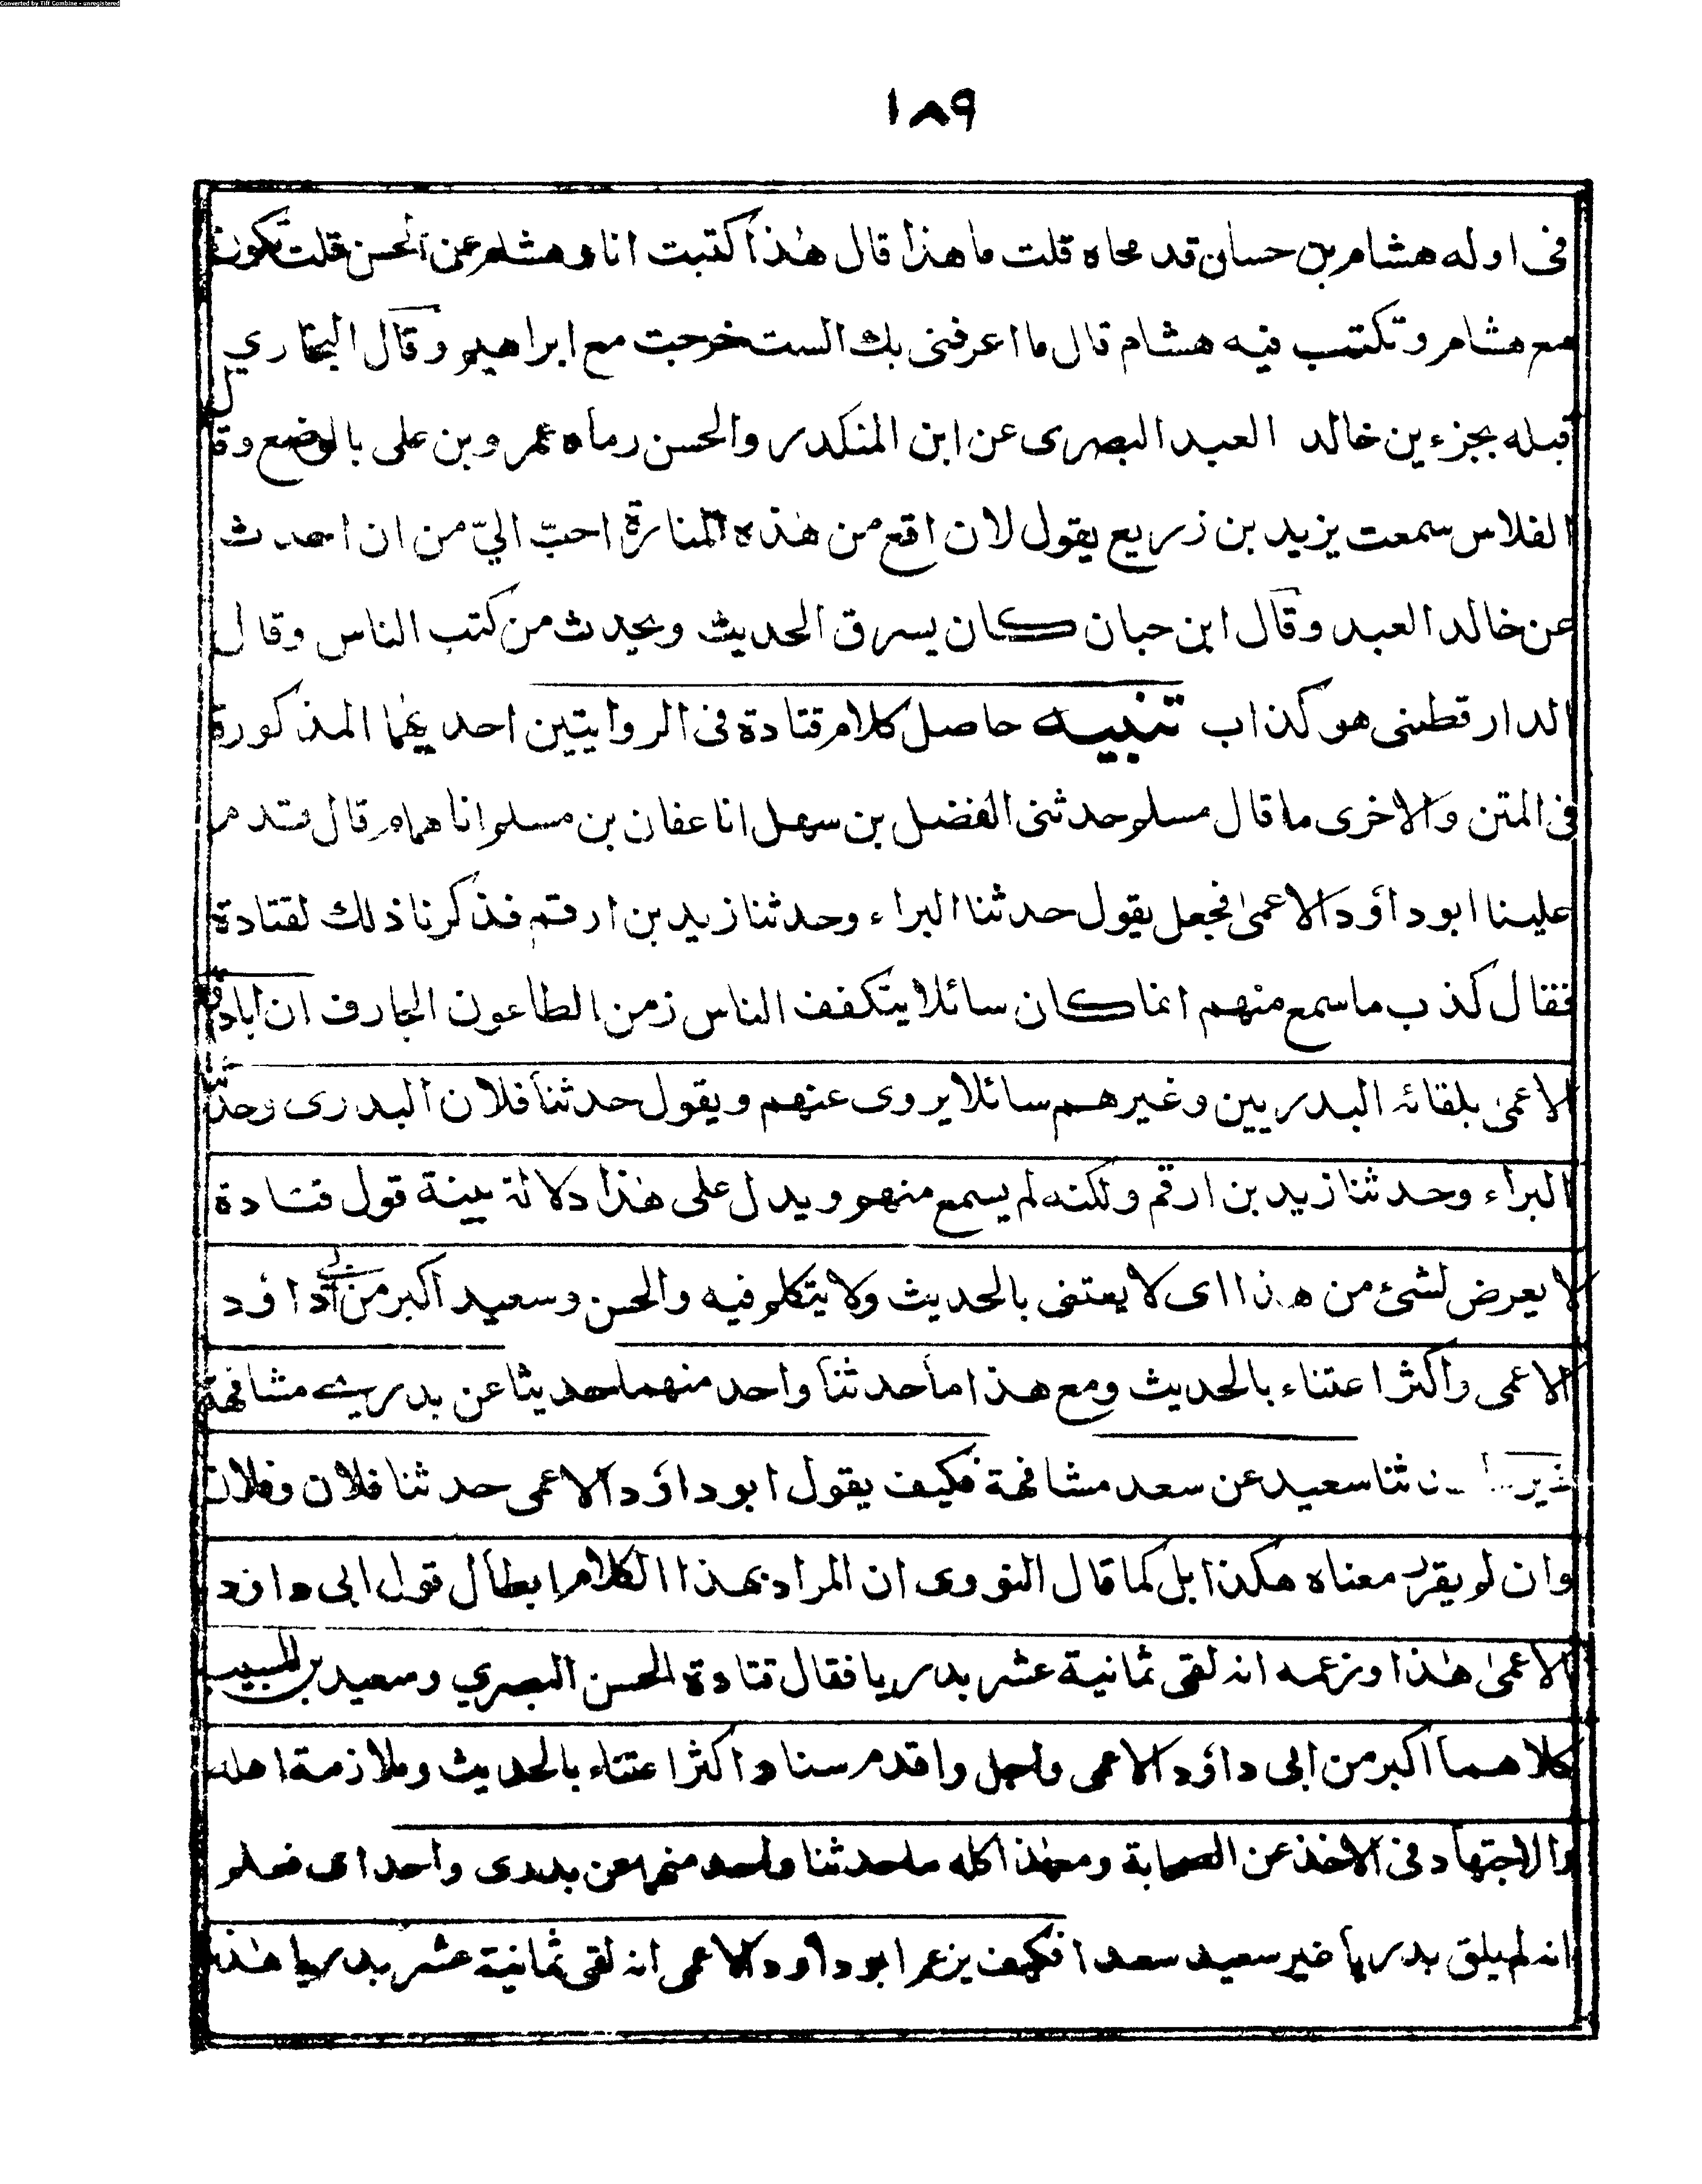 Converted by Tiff Combine - unregistered
١٨٩
فى اوله هشام بن حسان قد محاه قلت ما هذا قال هٰذا كتبت انا وهشام عن الحسن قلت تكون
مع هشام وتكتب فيه هشام قال ما اعرفنى بك الست خرجت مع ابراهيم وقال البخاري
قبله بجزءين خالد العبد البصرى عن ابن المنكدر والحسن رماه عمرو بن على بالوضع وقال
الفلاس سمعت يزيد بن زريع يقول لان اقع من هٰذه المنارة احبّ اليّ من ان احدث
عن خالد العبد وقال ابن حبان كان يسرق الحديث ويحدث من كتب الناس وقال
الدارقطنى هو كذاب تنبيه حاصل كلام قتادة فى الروايتين احديهما المذكورة
فى المتن والاخرى ما قال مسلم حدثنى الفضل بن سهل انا عفان بن مسلم انا همام قال قدم
علينا ابو داؤد الاعمىٰ فجعل يقول حدثنا البراء وحدثنا زيد بن ارقم فذكرنا ذلك لقتادة
فقال كذب ما سمع منهم انما كان سائلا يتكفف الناس زمن الطاعون الجارف ان ابا
الاعمىٰ بلقائه البدريين وغيرهم سائلا يروى عنهم ويقول حدثنا فلان البدرى وحدثنا
البراء وحدثنا زيد بن ارقم ولكنه لم يسمع منهم ويدل على هٰذا دلالة بينة قول قتادة
لا يعرض لشئ من هذا اى لا يعتنى بالحديث ولا يتكلم فيه والحسن وسعيد اكبر من ابى داؤد
الاعمى واكثر اعتناء بالحديث ومع هذا ما حدثنا واحد منهما حديثا عن بدري مشافهة
ثنا سعيد عن سعد مشافهة فكيف يقول ابو داؤد الاعمى حدثنا فلان وفلان
وان لم يقرر معناه هكذا بل كما قال النووى ان المراد بهذا الكلام ابطال قول ابى داؤد
الاعمىٰ هٰذا وزعمه انه لقى ثمانية عشر بدريا فقال قتادة الحسن البصري وسعيد بن المسيب
كلاهما اكبر من ابى داؤد الاعمى واجل واقدم سنا واكثر اعتناء بالحديث وملازمة اهله
والاجتهاد فى الاخذ عن الصحابة ومع هٰذا كله ما حدثنا واحد منهما عن بدرى واحد اى فعلم
انه لم يلق بدريا غير سعيد سعدا فكيف يزعم ابو داؤد الاعمى انه لقى ثمانية عشر بدريا هٰذا